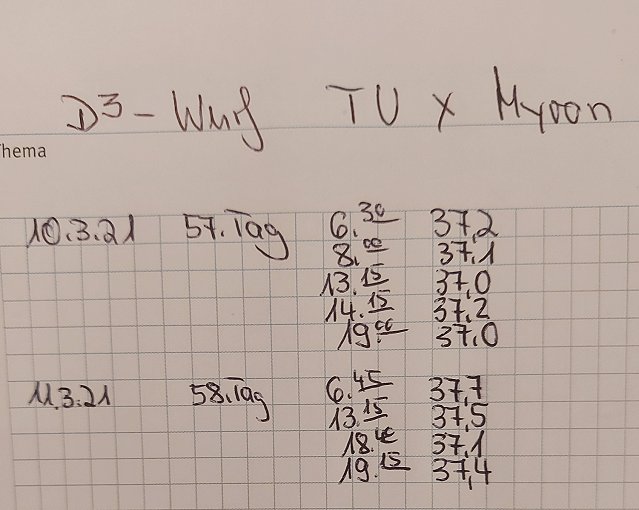 D³ - Wurf TU x Myron
Thema
10.3.21 57. Tag 6.30 37,2
8.00 37.1
13.15 37,0
14.15 37,2
19.00 37,0
11.3.21 58. Tag 6.45 37,7
13.15 37,5
18. 37,1
19.15 37,4